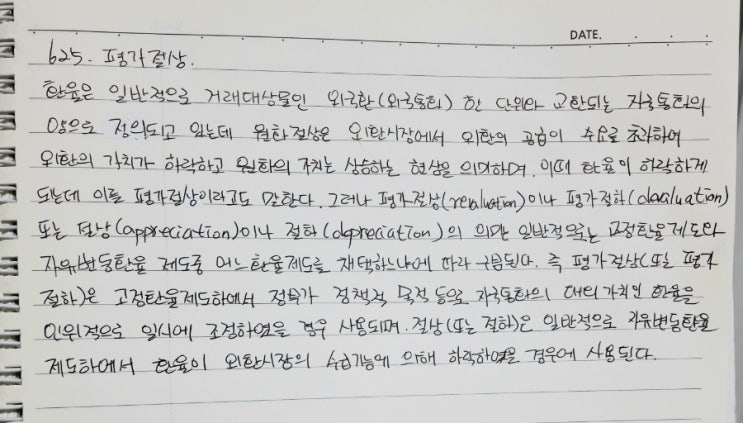 DATE.
625. 평가절상.
환율은 일반적으로 거래대상물인 외국환(외국통화) 한 단위와 교환되는 자국통화의
양으로 정의되고 있는데 원화절상은 외환시장에서 외환의 공급이 수요를 초과하여
외환의 가치가 하락하고 원화의 가치는 상승하는 현상을 의미하며, 이때 환율이 하락하게
되는데 이를 평가절상이라고도 말한다. 그러나 평가절상(revaluation)이나 평가절하(devaluation)
또는 절상(appreciation)이나 절하(depreciation)의 의미는 일반적으로는 고정환율제도와
자유변동환율 제도중 어느환율제도를 채택하느냐에 따라 구분된다. 즉 평가절상(또는 평가
절하)은 고정환율제도하에서 정부가 정책적 목적 등으로 자국통화의 대외가치인 환율을
인위적으로 일시에 조정하였을 경우 사용되며, 절상(또는 절하)은 일반적으로 자유변동환율
제도하에서 환율이 외환시장의 수급기능에 의해 하락하였을 경우에 사용된다.